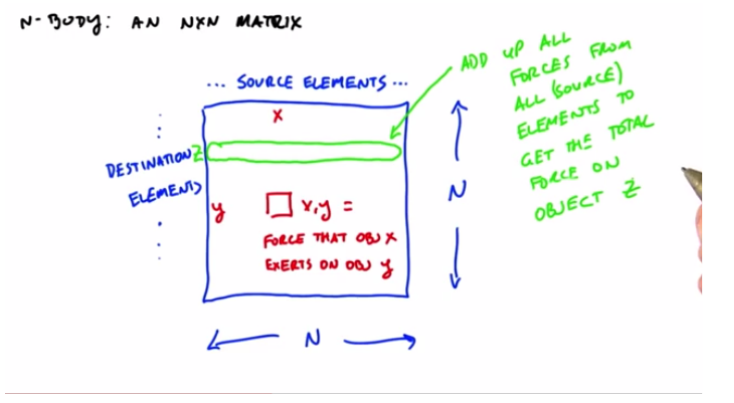 N-BODY: AN NXN MATRIX
... SOURCE ELEMENTS ...
X
DESTINATION Z
ELEMENTS
y
x,y =
FORCE THAT OBJ X
EXERTS ON OBJ y
N
N
ADD UP ALL
FORCES FROM
ALL (SOURCE)
ELEMENTS TO
GET THE TOTAL
FORCE ON
OBJECT Z